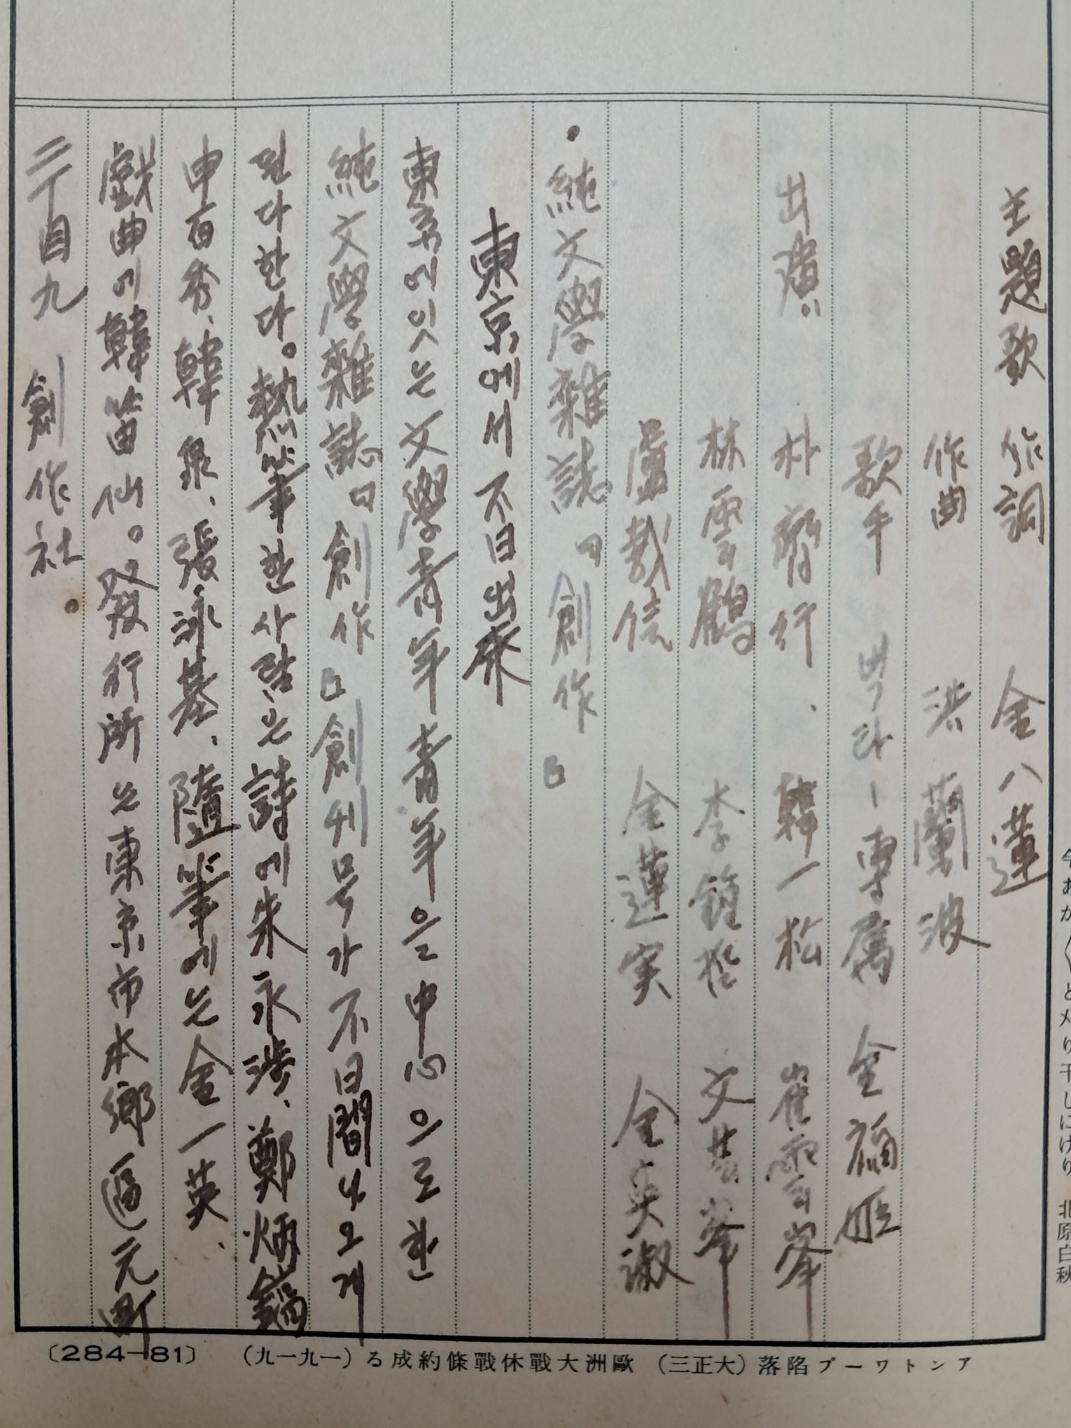 主題歌 作詞 金八蓮
作曲 洪蘭波
歌手 빅타ー専属 金福姬
出演 朴齊行、韓一松 崔雲峯
林雲鶴 李鍾哲 文芸峯
盧載信 金蓮実 金英淑
•純文學雜誌『創作』
東京에서 不日出來
東京에잇는 文學靑年靑年으로 中心으로한
純文學雜誌『創作』創刊号가 不日間나오게
된다한다。熱筆한사람은 詩에朱永涉、鄭炳鎬
申百秀、韓泉、張泳基、隨筆에는金一英、
戱曲에韓笛仙。發行所는東京市本鄕區元町
二丁目九 創作社。
今あか〱と刈り干しにけり 北原白秋
〔284—81〕 (九一九一) る成約條戰休戰大洲歐 (三正大) 落陷プーワトンア